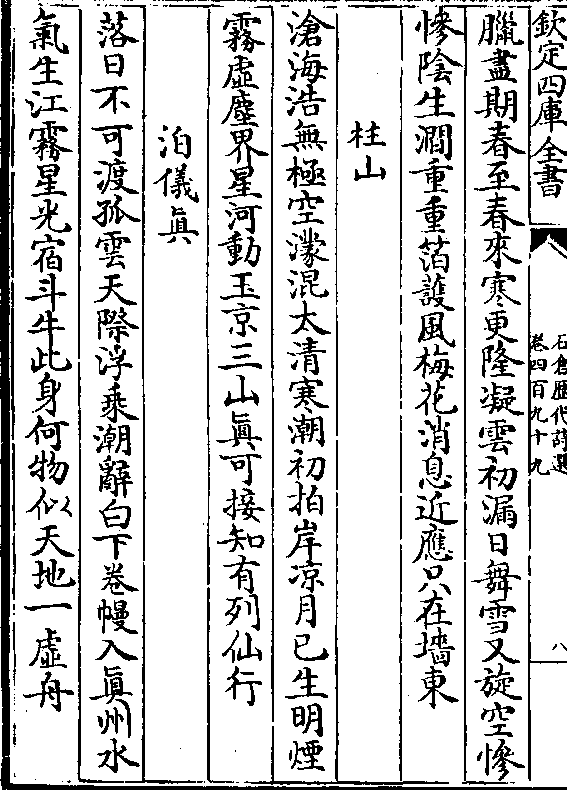 欽定四庫全書
石倉歷代詩選
卷四百九十九
八
臘盡期春至春來寒更隆凝雲初漏日舞雪又旋空慘
慘陰生澗重重箔護風梅花消息近應只在墻東
柱山
滄海浩無極空濛混太清寒潮初拍岸凉月已生明煙
霧虛塵界星河動玉京三山眞可接知有列仙行
泊儀眞
落日不可渡孤雲天際浮乘潮辭白下卷幔入眞州水
氣生江霧星光宿斗牛此身何物似天地一虛舟